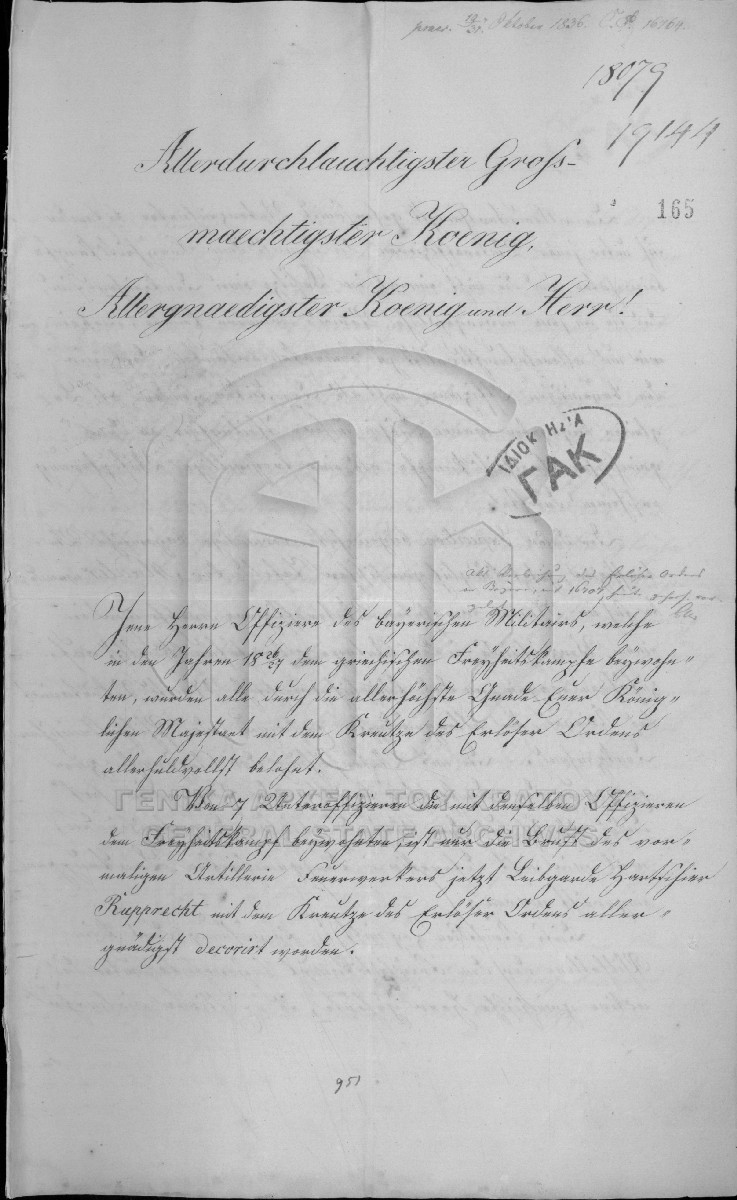 praes. 19/31. Oktober 1836. 16164.
18079
19144
165
Allerdurchlauchtigster Gross-
maechtigster Koenig,
Allergnaedigster Koenig und Herr!
ΓΑΚ
Jene Herrn Offiziere des bayerischen Militairs, welche
in den Jahren 18 26/27 dem griechischen Freyheitskampfe beywohn-
ten, wurden alle durch die allerhöchste Gnade Euer König-
lichen Majestaet mit dem Kreutze des Erlöser Ordens
allerhuldvollst belohnt.
Von 7 Unteroffizieren die mit denselben Offizieren
dem Freyheitskampf beywohnten, ist nur die Brust des vor-
maligen Artillerie Feuerwerkers jetzt Leibgarde Hartschier
Rupprecht mit dem Kreutze des Erlöser Ordens aller-
gnädigst decorirt worden.
ΓΕΝΙΚΑ ΑΡΧΕΙΑ ΤΟΥ ΚΡΑΤΟΥΣ
GENERAL STATE ARCHIVES
951